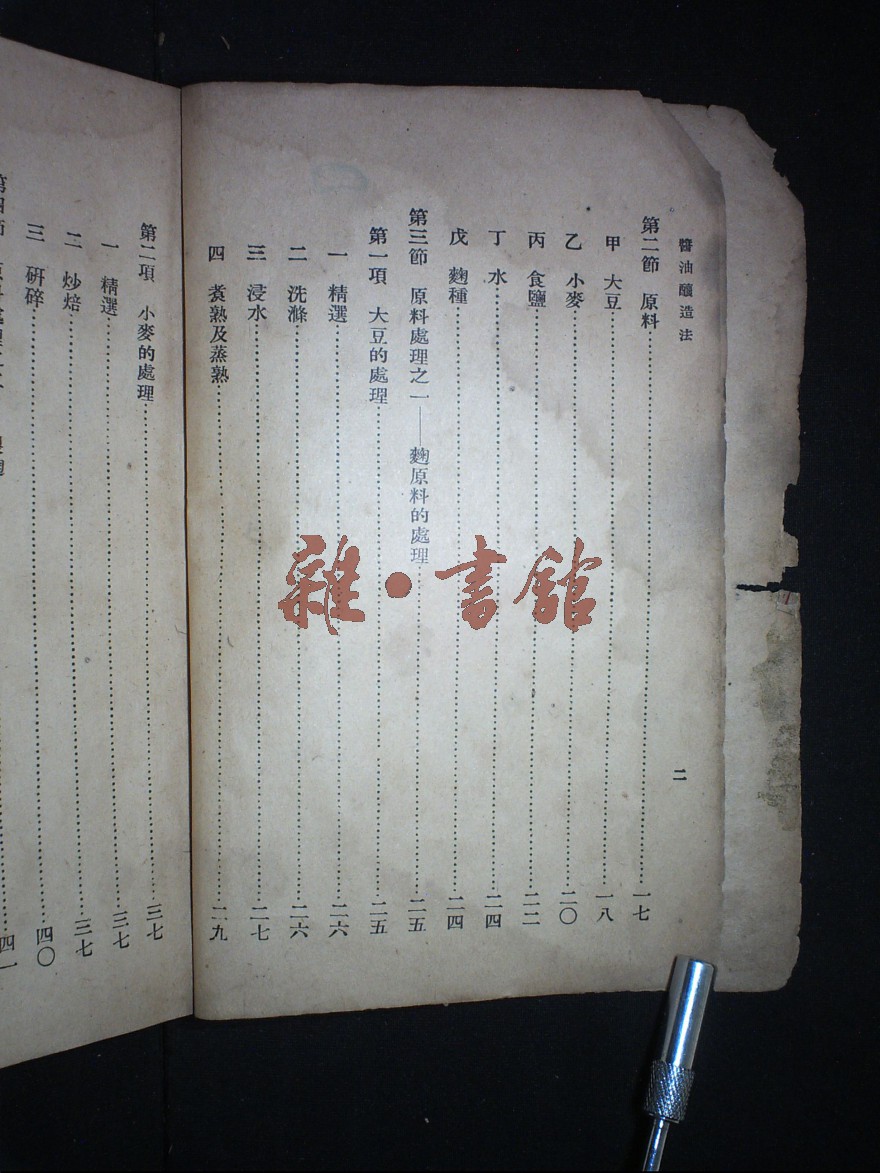 醬油釀造法
二
第二節 原料……一七
甲 大豆……一八
乙 小麥……二〇
丙 食鹽……二二
丁 水……二四
戊 麴種……二四
第三節 原料處理之一——麴原料的處理……二五
第一項 大豆的處理……二五
一 精選……二六
二 洗滌……二六
三 浸水……二七
四 煮熟及蒸熟……二九
第二項 小麥的處理……三七
一 精選……三七
二 炒焙……三七
三 研碎……四〇
四一
雜·書館